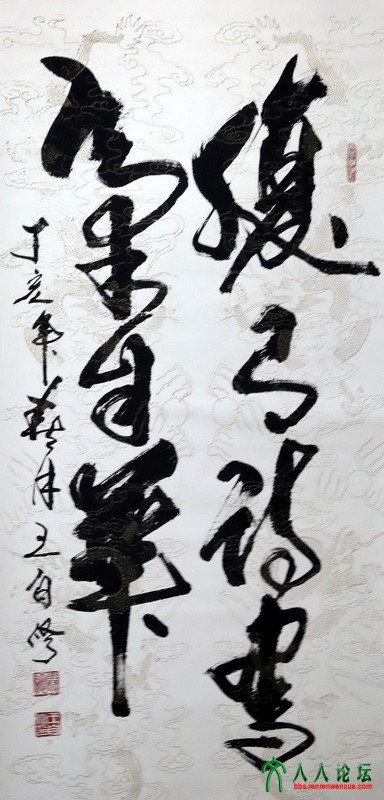 腹有詩書
氣自華
丁亥年 月王自
人人论坛
bbs.renrenwenxue.com